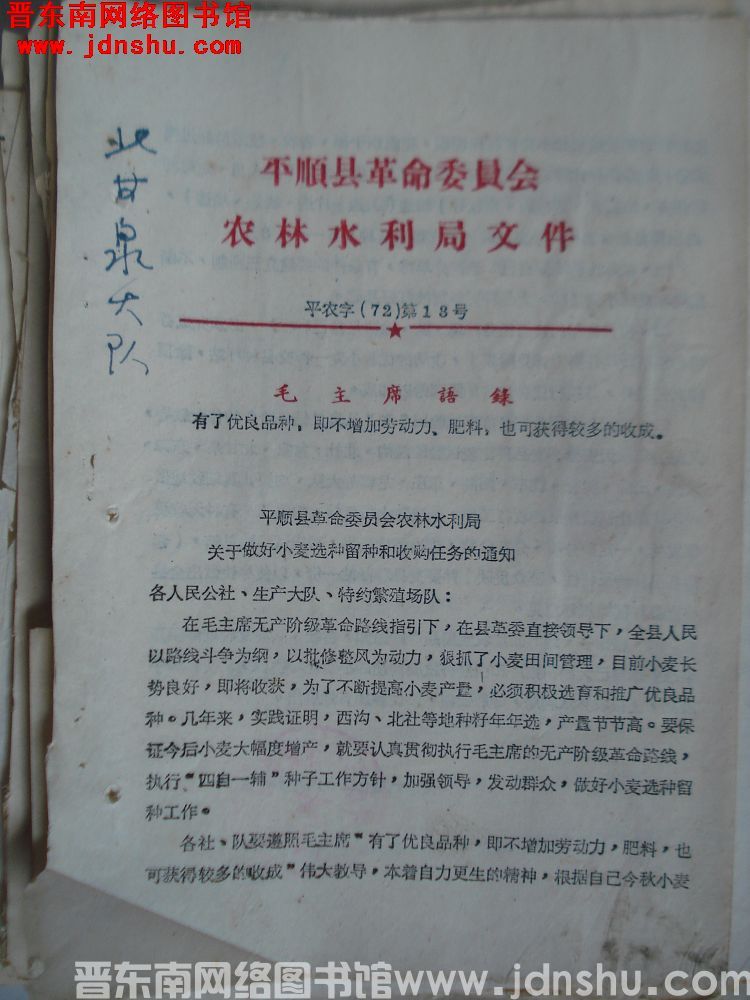 晋东南网络图书馆
www.jdnshu.com
北甘泉大队
平順县革命委員会
农林水利局文件
平农字(72)第13号
毛主席語錄
有了优良品种，即不增加劳动力、肥料，也可获得较多的收成。
平顺县革命委员会农林水利局
关于做好小麦选种留种和收购任务的通知
各人民公社、生产大队、特约繁殖场队：
在毛主席无产阶级革命路线指引下，在县革委直接领导下，全县人民
以路线斗争为纲，以批修整风为动力，狠抓了小麦田间管理，目前小麦长
势良好，即将收获，为了不断提高小麦产量，必须积极选育和推广优良品
种。几年来，实践证明，西沟、北社等地种籽年年选，产量节节高。要保
证今后小麦大幅度增产，就要认真贯彻执行毛主席的无产阶级革命路线，
执行“四自一辅”种子工作方针，加强领导，发动群众，做好小麦选种留
种工作。
各社、队要遵照毛主席“有了优良品种，即不增加劳动力，肥料，也
可获得较多的收成”伟大教导，本着自力更生的精神，根据自己今秋小麦
晋东南网络图书馆www.jdnshu.com